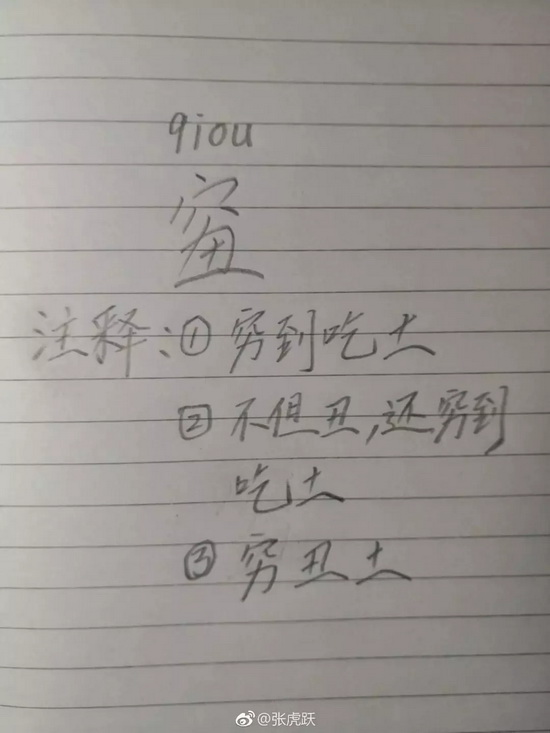 qiou
注释:①穷到吃土
②不但丑,还穷到
吃土
③穷丑土
@张虎跃